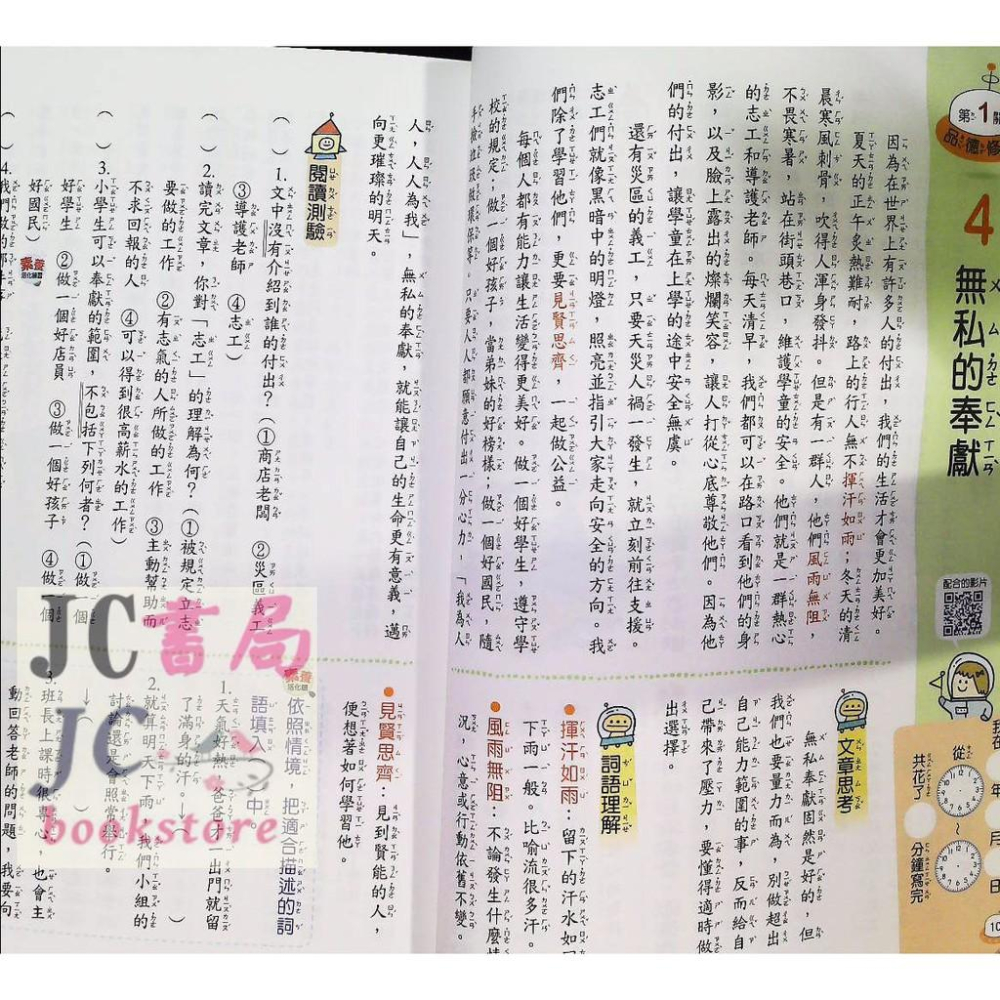 第1關
品德修
4 無私的奉獻
配合的影片
因為在世界上有許多人的付出，我們的生活才會更加美好。
夏天的正午炙熱難耐，路上的行人無不揮汗如雨；冬天的清
晨寒風刺骨，吹得人渾身發抖。但是有一群人，他們風雨無阻，
不畏寒暑，站在街頭巷口，維護學童的安全。他們就是一群熱心
的志工和導護老師。每天清早，我們都可以在路口看到他們的身
影，以及臉上露出的燦爛笑容，讓人打從心底尊敬他們。因為他
們的付出，讓學童在上學的途中安全無虞。
還有災區的義工，只要天災人禍一發生，就立刻前往支援。
志工們就像黑暗中的明燈，照亮並指引大家走向安全的方向。我
們除了學習他們，更要見賢思齊，一起做公益。
每個人都有能力讓生活變得更美好。做一個好學生，遵守學
校的規定；做一個好孩子，當弟妹的好榜樣；做一個好國民，隨
手撿垃圾做環保等，只要人人都願意付出一分心力，「我為人
人，人人為我」，無私的奉獻，就能讓自己的生命更有意義，邁
向更璀璨的明天。
年
月
日
從
~
共花了
分鐘寫完
10
文意思考
無私奉獻固然是好的，但
我們也要量力而為，別做超出
自己能力範圍的事，反而給自
己帶來了壓力，要懂得適時做
出選擇。
詞語理解
揮汗如雨：留下的汗水如同
下雨一般。比喻流很多汗。
風雨無阻：不論發生什麼情
況，心意或行動依舊不變。
見賢思齊：見到賢能的人，
便想著如何學習他。
閱讀測驗
（ ）1. 文中沒有介紹到誰的付出？（①商店老闆 ②災區義工
③導護老師 ④志工）
（ ）2. 讀完文章，你對「志工」的理解為何？（①被規定立志
要做的工作 ②有志氣的人所做的工作 ③主動幫助而
不求回報的人 ④可以得到很高薪水的工作）
（ ）3. 小學生可以奉獻的範圍，不包括下列何者？（①做一個
好學生 ②做一個好店員 ③做一個好孩子 ④做一個
好國民）
素養
活化練習
（ ）4. 我們做
素養
活化題
依照情境，把適合描述的詞
語填入（ ）中。
1. 天氣好熱，爸爸才一出門就留
了滿身的汗。→（ ）
2. 就算明天下雨，我們小組的
討論還是會照常舉行。
→（ ）
3. 班長上課時很專心，也會主
動回答老師的問題，我要向
JC書局
JC
bookstore